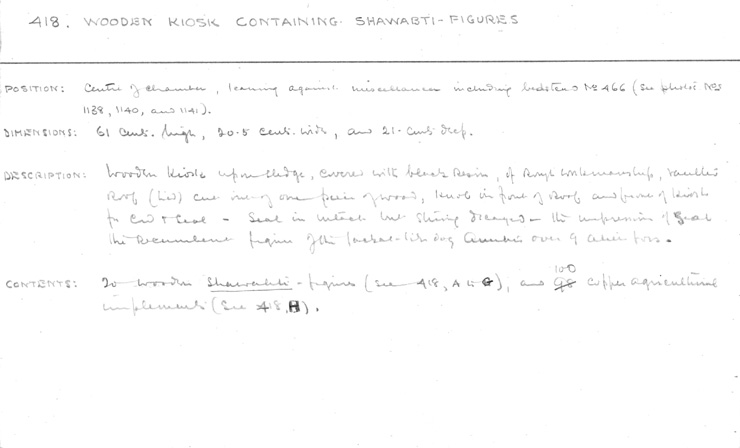 418. WOODEN KIOSK CONTAINING SHAWABTI-FIGURES
POSITION: Centre of chamber, leaning against miscellanea including bedstead No 466 (see photos Nos
1138, 1140, and 1141).
DIMENSIONS: 61 cents. high, 20.5 cents. wide, and 21. cents deep.
DESCRIPTION: Wooden kiosk upon sledge, covered with black resin, of rough workmanship, vaulted
roof (Lid) cut out of one piece of wood, knob in front of roof and front of kiosk
for cord & seal - Seal in intact but string decayed - the impression of seal
the recumbent figure of the jackal-like dog Anubis over 9 alien foes.
CONTENTS: 20 wooden Shawabti-figures (see 418, A to G), and 98 100 copper agricultural
implements (see 418, H).